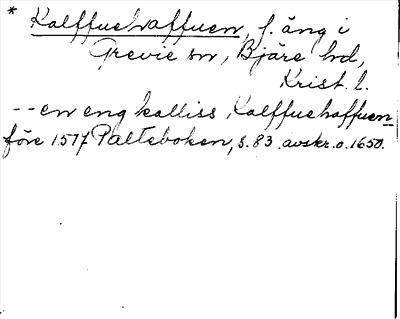 * Kalffuehaffuen, f. äng i
Grevie sn, Bjäre hd,
Krist. l.
-- en eng kalliss Kalffuehaffuen
före 1577 Palteboken, s. 83 avskr. o. 1650.